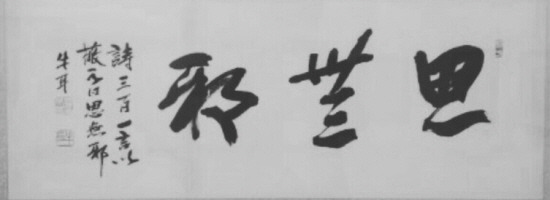 思無邪
詩三百一言以
蔽之曰思無邪
牛耳